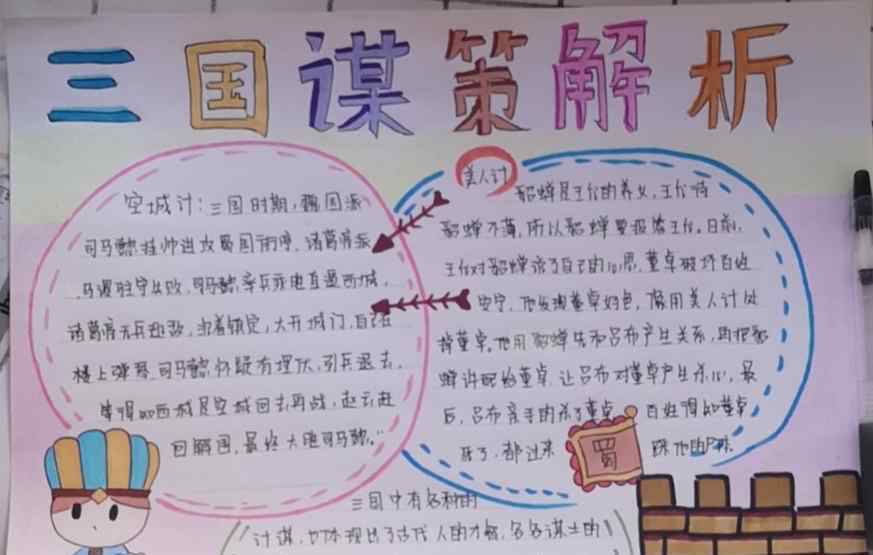 三国谋策解析
空城计：三国时期，魏国派
司马懿挂帅进攻蜀国街亭，诸葛亮派
马谡驻守失败，司马懿率兵乘胜直逼西城，
诸葛亮无兵迎敌，沉着镇定，大开城门，自己在
楼上弹琴，司马懿怀疑有埋伏，引兵退去，
等得知西城是空城回去再战，赵云赶
回解围，最终大胜司马懿。
美人计
貂蝉是王允的养女，王允待
貂蝉不薄，所以貂蝉要报答王允。日前，
王允对貂蝉说了自己的心思，董卓破坏百姓
安宁，他发现董卓好色，常用美人计处
掉董卓，他用貂蝉先和吕布产生关系，再把貂
蝉许配给董卓，让吕布对董卓产生杀心，最
后，吕布亲手的杀了董卓，百姓得知董卓
死了，都过来 踩他的尸体
蜀
三国中有各种的
计谋，也体现出了古代人的才能，各名谋士的